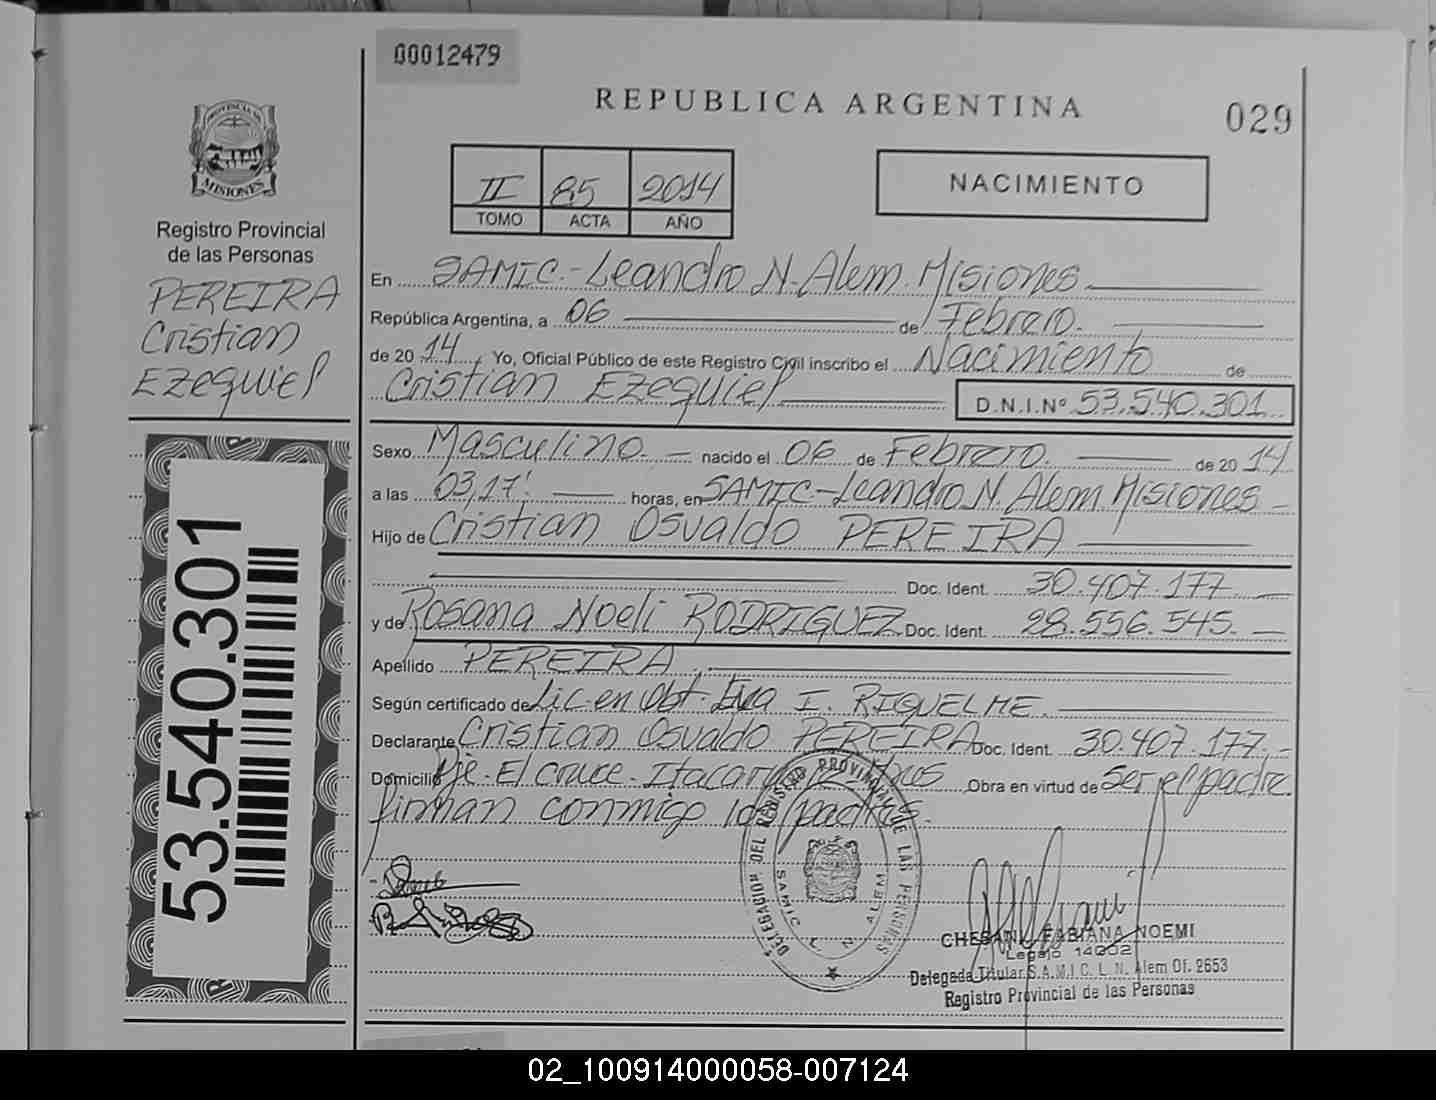 00012479
REPUBLICA ARGENTINA
029
PROVINCIA DE
MISIONES
Registro Provincial
de las Personas
PEREIRA
Cristian
Ezequiel
II 85 2014
TOMO ACTA AÑO
NACIMIENTO
En SAMIC.-Leandro N. Alem. Misiones
República Argentina, a 06 de Febrero.
de 20 14, Yo, Oficial Público de este Registro Civil inscribo el Nacimiento de
Cristian Ezequiel D.N.I.Nº 53.540.301
Sexo Masculino nacido el 06 de Febrero de 20 14
a las 03,17' horas, en SAMIC-Leandro N. Alem. Misiones
Hijo de Cristian Osvaldo PEREIRA
Doc. Ident. 30.407.177
y de Rosana Noeli RODRIGUEZ Doc. Ident. 28.556.545.
Apellido PEREIRA
Según certificado de Lic. en Obt. Eva I. RIQUELME.
Declarante Cristian Osvaldo PEREIRA Doc. Ident. 30.407.177.
Domicilio Pje. El cruce. Obra en virtud de Ser el padre
firman conmigo los padres.
53.540.301
DELEGACION DEL REGISTRO PROVINCIAL DE LAS PERSONAS
SAMIC L N ALEM
FABIANA NOEMI
Legajo 14002
Delegada Titular S.A.M.I.C. L. N. Alem Of. 2653
Registro Provincial de las Personas
02_100914000058-007124